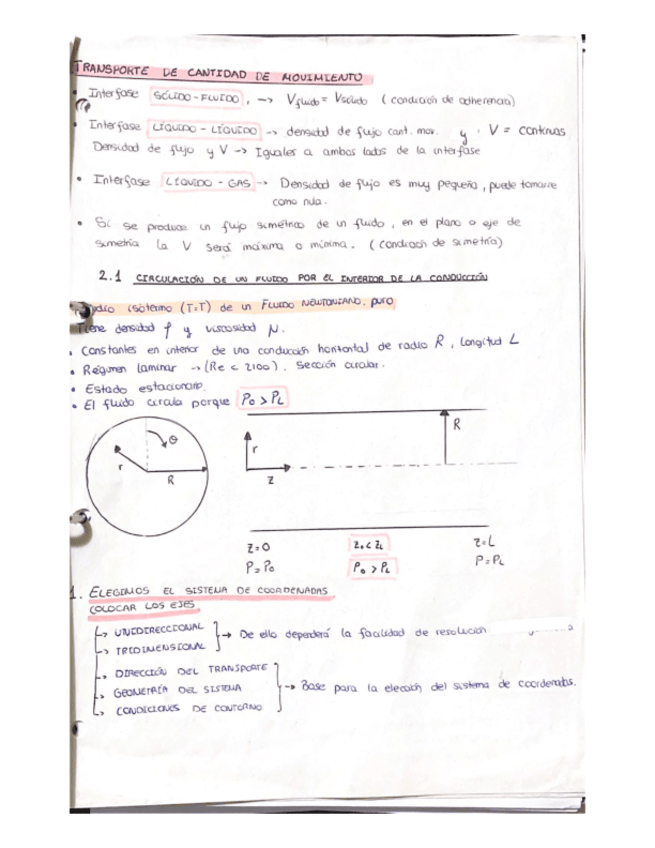 TRANSPORTE DE CANTIDAD DE MOVIMIENTO
• Interfase SÓLIDO-FLUIDO, → Vfluido = Vsólido (condición de adherencia)
• Interfase LÍQUIDO-LÍQUIDO → densidad de flujo cant. mov. y V = continuas
Densidad de flujo y V → Iguales a ambos lados de la interfase
• Interfase LÍQUIDO-GAS → Densidad de flujo es muy pequeña, puede tomarse
como nula.
• Si se produce un flujo simétrico de un fluido, en el plano o eje de
simetría la V será máxima o mínima. (condición de simetría)
2.1 CIRCULACIÓN DE UN FLUIDO POR EL INTERIOR DE LA CONDUCCIÓN
isotermo (T=T) de un FLUIDO NEWTONIANO. puro
Tiene densidad ρ y viscosidad μ.
• Constantes en interior de una conducción horizontal de radio R, longitud L
• Régimen laminar → (Re < 2100). Sección circular.
• Estado estacionario.
• El fluido circula porque P0 > PL
θ
r
R
r
z
R
z=0
z0 < zL
z=L
P=P0
P0 > PL
P=PL
1. ELEGIMOS EL SISTEMA DE COORDENADAS
COLOCAR LOS EJES
↳ UNIDIRECCIONAL
↳ TRIDIMENSIONAL
→ De ello dependerá la facilidad de resolución
↳ DIRECCIÓN DEL TRANSPORTE
↳ GEOMETRÍA DEL SISTEMA
↳ CONDICIONES DE CONTORNO
→ Base para la elección del sistema de coordenadas.